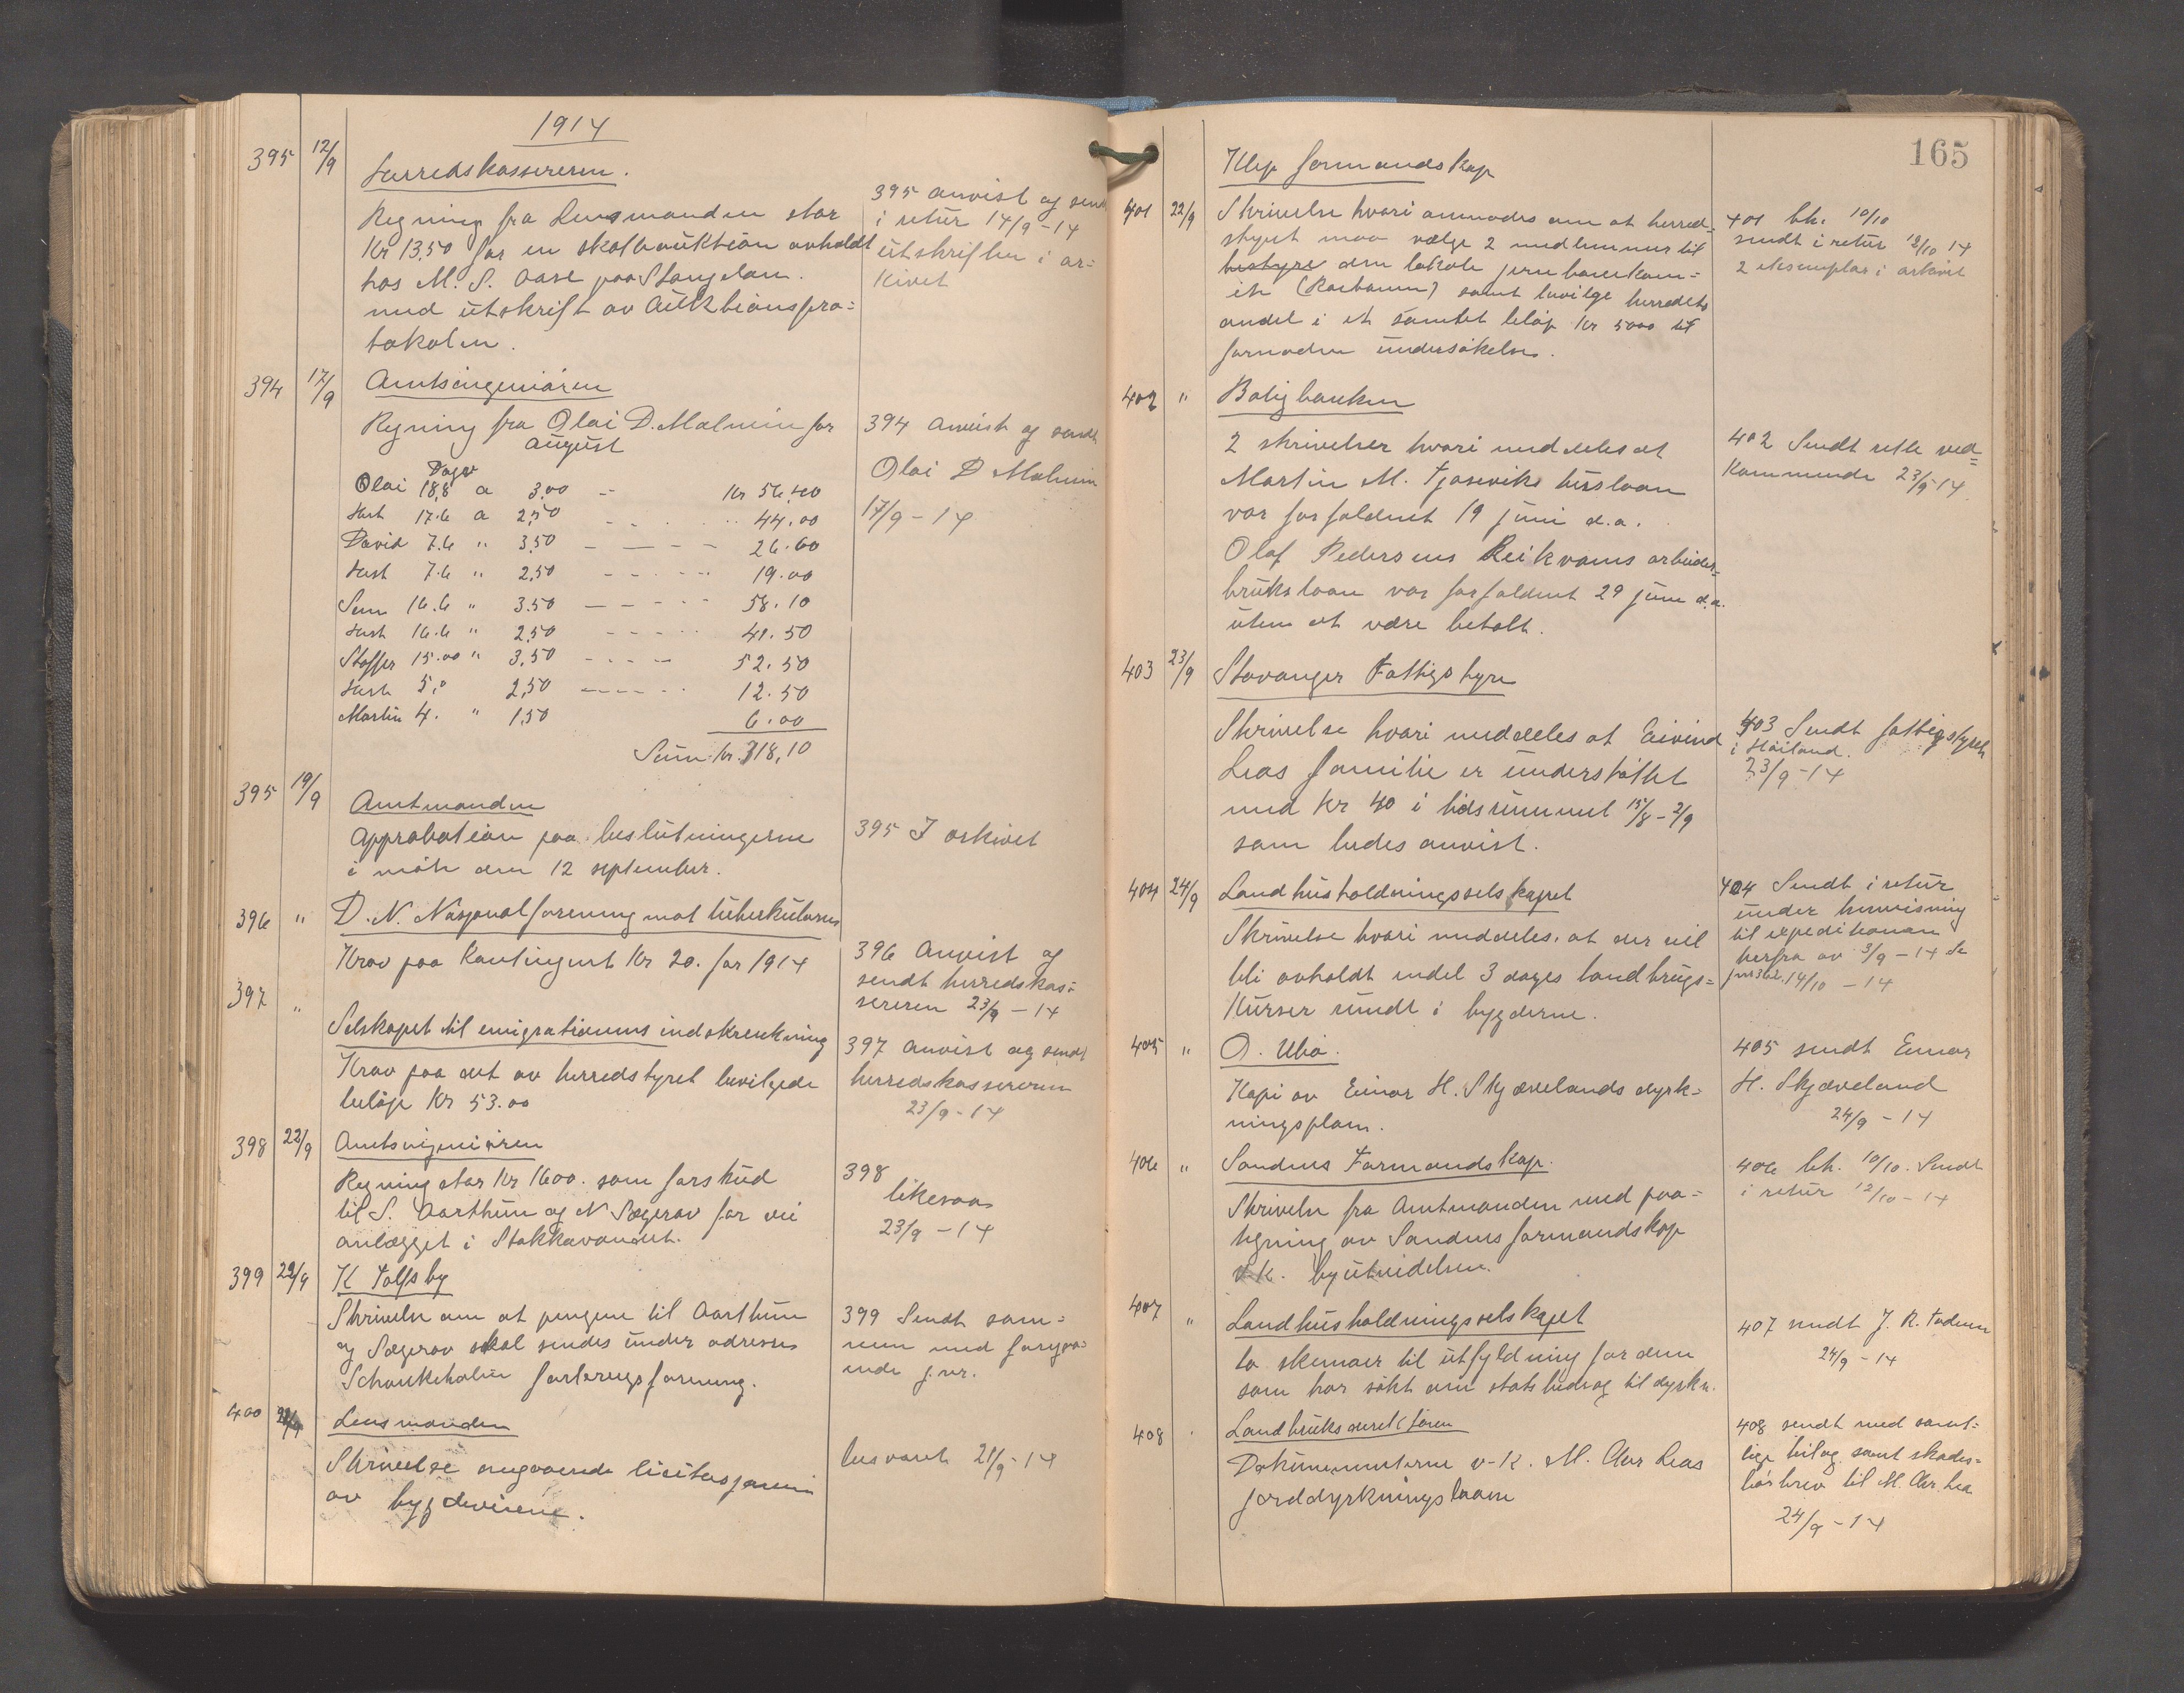 1914
395 12/9
Herredskassereren.
Regning fra Lensmanden stor
Kr 13,50 for en skolbauktion avholdt
hos M. S. Aase paa Stangelan.
med utskrift av Auktionspro=
tokolen.
395 anvist og send
i retur 14/9-14
utskriften i ar=
kivet
394 17/9
Amtsingeniøren
Regning fra Olai D. Malmin for
august
Dager
Olai 18,8 a 3,00 - Kr 56,40
Hest 17.6 a 2,50 - 44.00
David 7.6 " 3,50 - 26.60
Hest 7.6 " 2,50 - 19.00
Sem 16.6 " 3.50 - 58.10
Hest 16.6 " 2,50 - 41.50
Staffer 15.00 " 3,50 - 52.50
Hest 5,0 2,50 - 12.50
Martin 4. " 1,50 6.00
Sum kr. 318,10
394 Anvist og sendt
Olai D Malmin
17/9-14
395 19/9
Amtmanden
Approbation paa beslutningerne
i møte den 12 september.
395 I arkivet
396 "
D. N. Nasjonalforening mot tuberkulosen
Krav paa Kontingent Kr 20. for 1914
396 Anvist og
sendt herredskas=
sereren 23/9-14
397 "
Selskapet til emigrationens indskrenkning
Krav paa det av herredstyret bevilgede
beløp Kr 53.00
397 Anvist og sendt
herredskassereren
23/9-14
398 22/9
Amtsingeniøren
Regning stor Kr 1600. som forskud
til S. Aarthun og N Sægrov for vei
anlægget i Stokkavandet.
398
likesaa
23/9-14
399 22/9
K Tolfsby
Skrivelse om at pengene til Aarthun
og Sægrov skal sendes under adresse
Schankeholen forbrugsforening.
399 Sendt sam=
men med foregaa=
ende j.nr.
400 22/9
Lensmanden
Skrivelse angaaende licitasjonen
av bygdeveiene.
besvaret 21/9-14
165
Klep formandskap
401 22/9
Skrivelse hvori anmodes om at herred=
styret maa vælge 2 medlemmer til
bestyre den lokale jernbanekom=
ite (Raebanen) samt bevilge herredets
andel i et samlet beløp Kr 5000 til
fornøden undersøkelse.
401 bh. 10/10
sendt i retur 12/10 14
2 eksemplar i arkivet
402 "
Boligbanken
2 skrivelser hvori meddeles at
Martin M. Tjøseviks huslaan
var forfaldent 19 juni d.a.
Olaf Pedersens Reikvams arbeider=
brukslaan var forfaldent 29 juni d.a.
uten at være betalt.
402 Sendt rette ved=
kommende 23/9-14
403 23/9
Stavanger Fattigstyre
Skrivelse hvori meddeles at Eivind
Leas familie er understøttet
med Kr 40 i tidsrummet 15/8-2/9
som bedes anvist.
403 Sendt fattigstyret
i Høiland.
23/9-14
404 24/9
Landhusholdningsselskapet
Skrivelse hvori meddeles, at der vil
bli avholdt endel 3 dages landbrugs=
kurser rundt i bygderne.
404 Sendt i retur
under henvisning
til expeditionen
herfra av 3/9-14 Se
14/10-14
405 "
O. Ubø.
Kopi av Einar H. Skjævelands dyrk=
ningsplan.
405 sendt Einar
H. Skjæveland
24/9-14
406 "
Sandnes Formandskap.
Skrivelse fra Amtmanden med paa=
tegning av Sandnes formandskap
v.k. byutvidelsen.
406 bh. 10/10. Sendt
i retur 12/10-14
407 "
Landhusholdningsselskapet
to skemaer til utfyldning for dem
som har søkt om statsbidrag til dyrkn.
407 sendt J. R. Tveden
24/9-14
408
Landbruksdirektøren
Dokumenterne v-k. M. Chr Leas
jorddyrkningslaan
408 sendt med samt=
lige bilag samt skades=
løsbrev til M. Chr. Lea
24/9-14